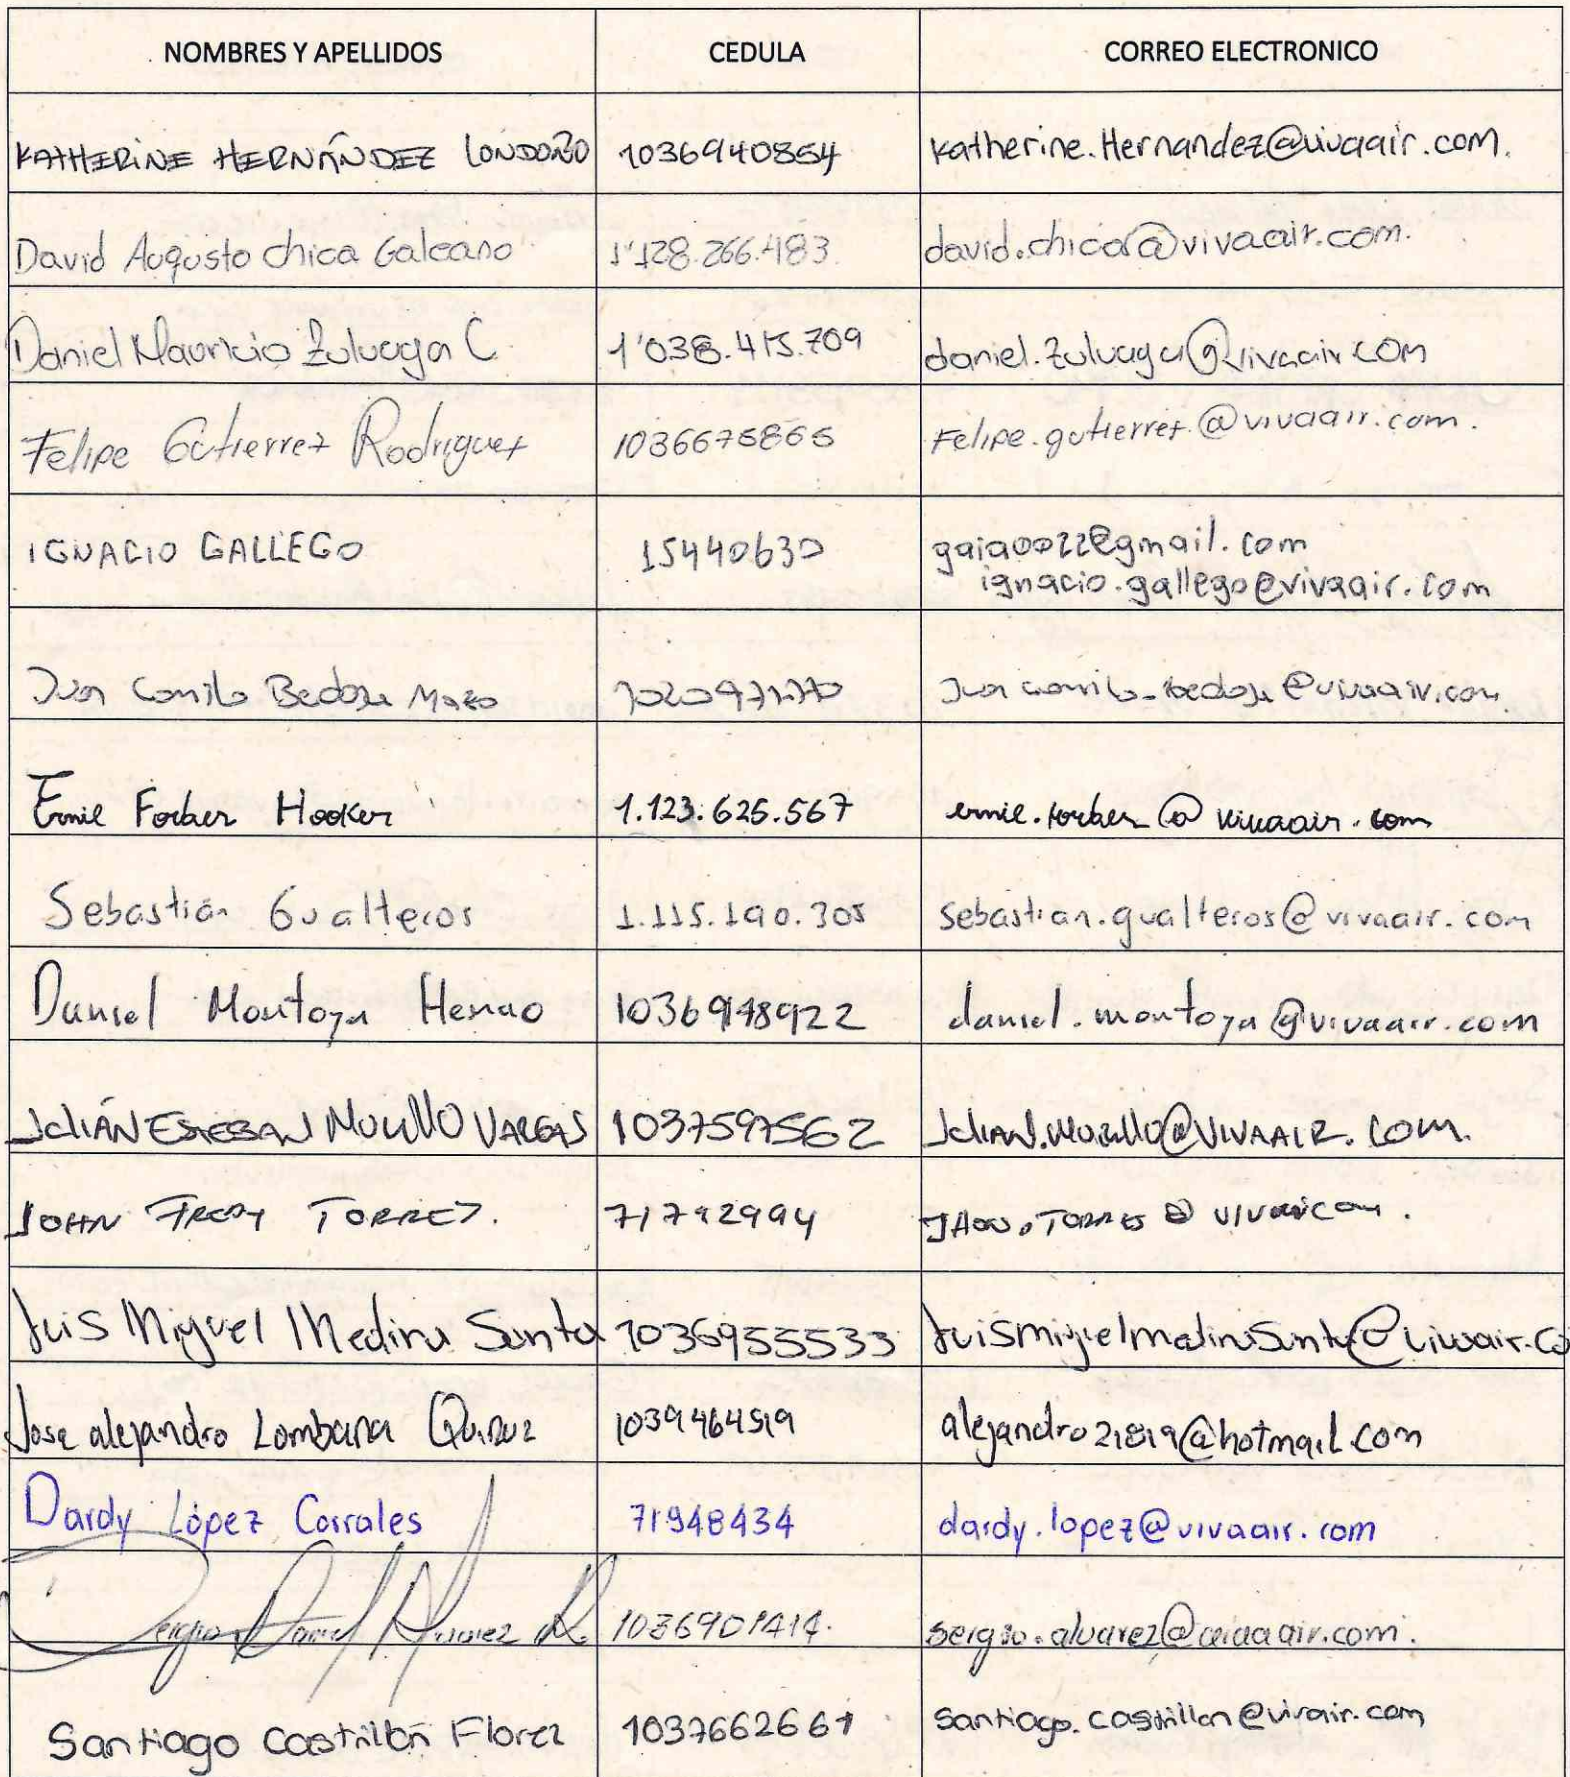 NOMBRES Y APELLIDOS CEDULA CORREO ELECTRONICO
KATHERINE HERNÁNDEZ LONDOÑO 1036940854 katherine.Hernandez@vivaair.com.
David Augusto chica Galeano 1'128.266.483 david.chica@vivaair.com.
Daniel Mauricio Zuluaga C. 1'038.415.709 daniel.zuluaga@vivaair.com
Felipe Gutierrez Rodriguez 1036675865 Felipe.gutierrez@vivaair.com.
IGNACIO GALLEGO 15440630 gaia0022@gmail.com
ignacio.gallego@vivaair.com
Juan Camilo Bedoya Mazo
Emil Forbes Hooker 1.123.625.567 emil.forbes@vivaair.com
Sebastián Gualteros 1.115.190.305 sebastian.gualteros@vivaair.com
Daniel Montoya Henao 1036948922 daniel.montoya@vivaair.com
JULIÁN ESTEBAN MURILLO VARGAS 1037597562 JULIAN.MURILLO@VIVAAIR.COM.
JOHN FREDY TORRES. 71792994
Luis Miguel Medina Santa 1036955533
Jose alejandro Lombana Quiroz 1039464519 alejandro21819@hotmail.com
Dardy López Corrales 71948434 dardy.lopez@vivaair.com
Sergio Daniel Alvarez R. 1036901414. sergio.alvarez@vivaair.com.
Santiago Castrillón Florez 1037662661 santiago.castrillon@vivair.com